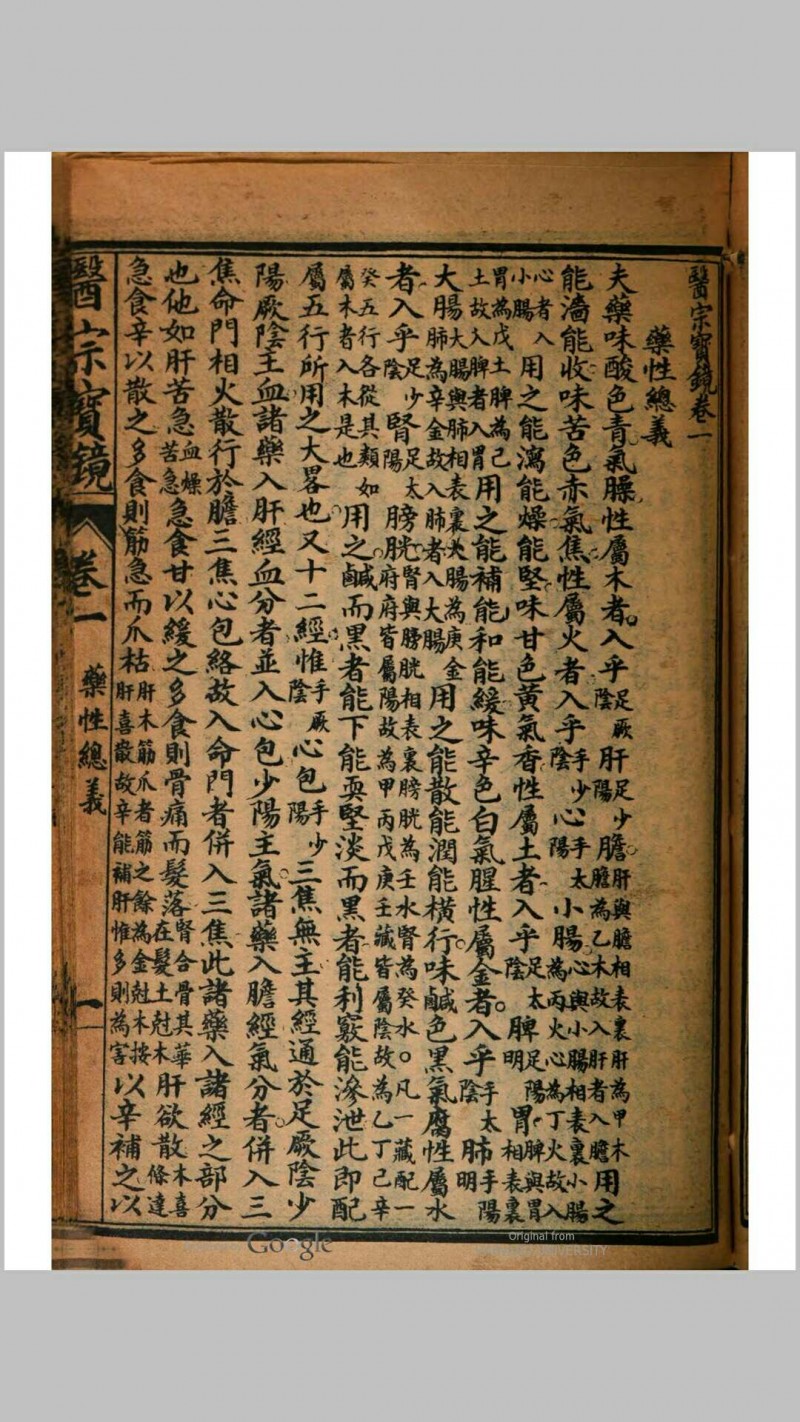 醫宗寶鏡卷一
藥性總義
夫藥味酸色青氣臊性屬木者入乎足厥陰肝足少陽膽肝與膽相表裏肝為甲木膽為乙木故入肝者入膽用之
能濇能收味苦色赤氣焦性屬火者入乎手少陰心手太陽小腸心與小腸相表裏小腸為丙火心為丁火故入
心者入小腸用之能瀉能燥能堅味甘色黃氣香性屬土者入乎足太陰脾足陽明胃脾與胃相表裏
胃為戊土脾為己土故入脾者入胃用之能補能和能緩味辛色白氣腥性屬金者入乎手太陰肺手陽明
大腸大腸與肺相表裏大腸為庚金肺為辛金故入肺者入大腸用之能散能潤能橫行味鹹色黑氣腐性屬水
者入乎足少陰腎足太陽膀胱腎與膀胱相表裏膀胱為壬水腎為癸水。凡一藏配一府府皆屬陽故為甲丙戊庚壬藏皆屬陰故為乙丁己辛
癸五行各從其類如屬木者入木是也用之鹹而黑者能下能耎堅淡而黑者能利竅能滲泄此即配
屬五行所用之大畧也又十二經惟手厥陰心包手少陽三焦無主其經通於足厥陰少
陽厥陰主血諸藥入肝經血分者並入心包少陽主氣諸藥入膽經氣分者併入三
焦命門相火散行於膽三焦心包絡故入命門者併入三焦此諸藥入諸經之部分
也他如肝苦急血燥苦急急食甘以緩之多食則骨痛而髮落腎合骨其華在髮土尅木肝欲散木喜條達
急食辛以散之多食則筋急而爪枯肝木筋爪者筋之餘為金尅木按肝喜散故辛能補肝惟多則為害以辛補之以
醫宗寶鏡 卷一 藥性總義 一
Google
Original from
UNIVERSITY